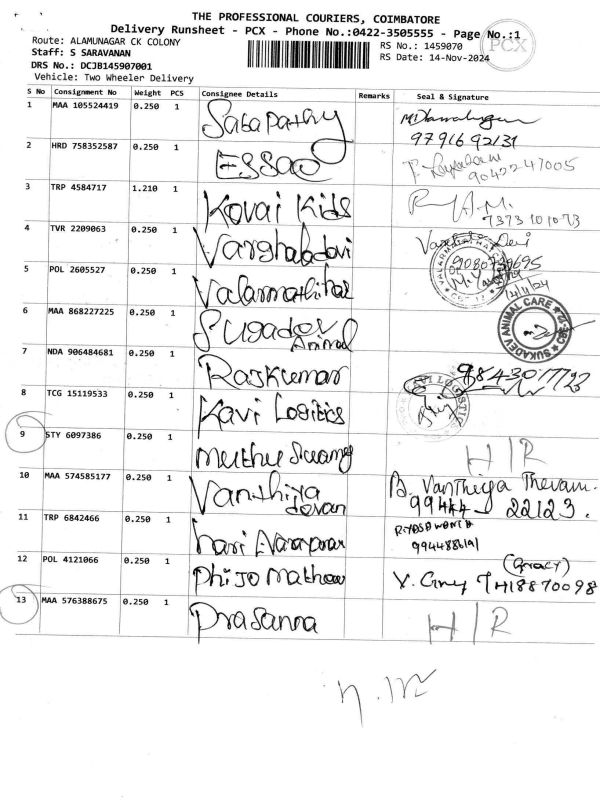 THE PROFESSIONAL COURIERS, COIMBATORE
Delivery Runsheet - PCX - Phone No.:0422-3505555 - Page No.:1
PCX
Route: ALAMUNAGAR CK COLONY
RS No.: 1459070
Staff: S SARAVANAN
RS Date: 14-Nov-2024
DRS No.: DCJB145907001
Vehicle: Two Wheeler Delivery
S No Consignment No Weight PCS Consignee Details Remarks Seal & Signature
1 MAA 105524419 0.250 1 Sabapathy
9791692131
2 HRD 758352587 0.250 1 ESSAO
9042247005
3 TRP 4584717 1.210 1 Kovai Kids
7373101073
4 TVR 2209063 0.250 1 Varghaladavi
5 POL 2605527 0.250 1 Valarmathihar
14/11/24
6 MAA 868227225 0.250 1 Sugadev Animal
SUKADEV ANIMAL CARE
7 NDA 906484681 0.250 1 Raskumar
9843017723
8 TCG 15119533 0.250 1 Kavi Logitics
9 STY 6097386 0.250 1 muthu Swamy H/R
10 MAA 574585177 0.250 1 Vanthiya devan B. Vanthiya Thevam.
99444 - 22123.
11 TRP 6842466 0.250 1 hari
9944886191
12 POL 4121066 0.250 1 Phijo Mathew
(Gracy)
13 MAA 576388675 0.250 1 Prasanna H/R